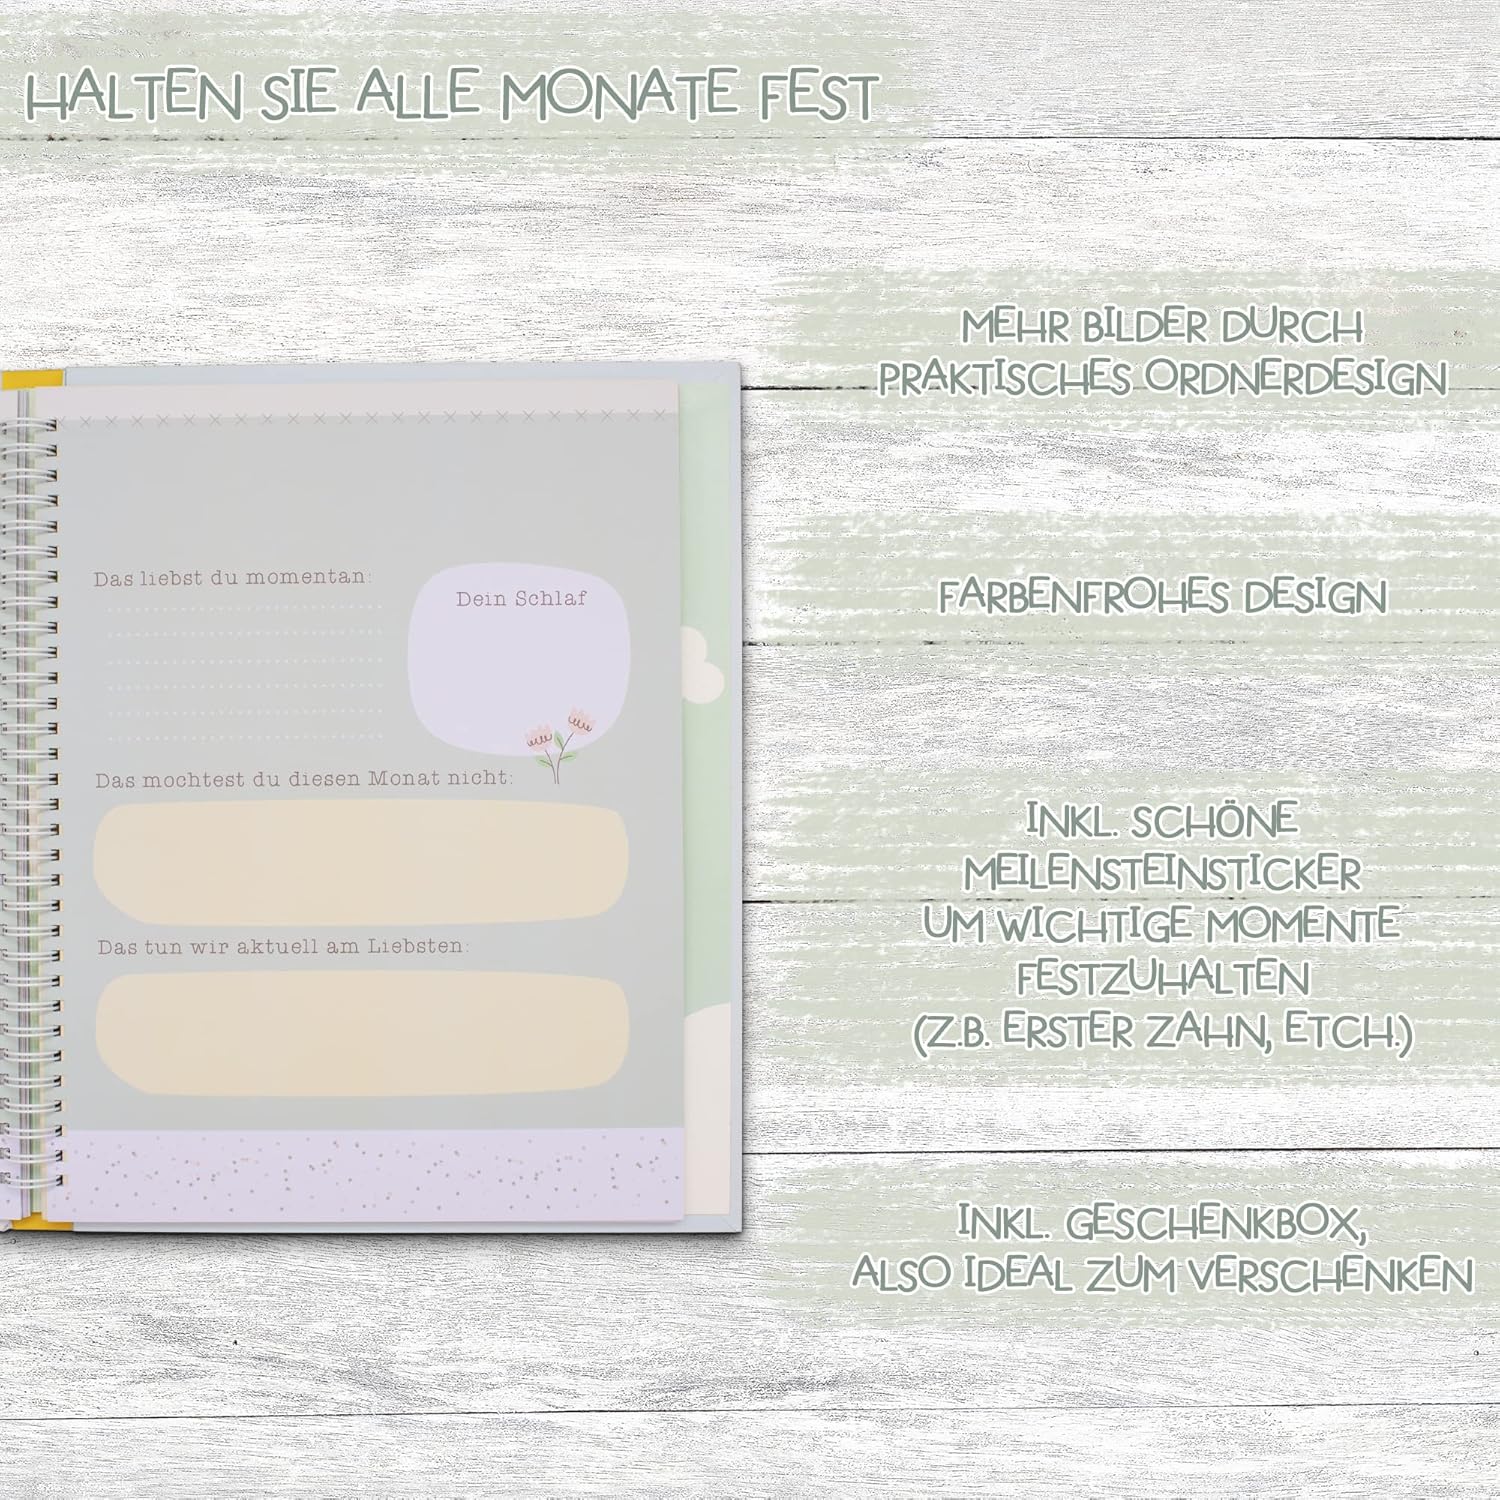 HALTEN SIE ALLE MONATE FEST
MEHR BILDER DURCH
PRAKTISCHES ORDNERDESIGN
FARBENFROHES DESIGN
Das liebst du momentan:
Dein Schlaf
Das mochtest du diesen Monat nicht:
Das tun wir aktuell am Liebsten:
INKL. SCHÖNE
MEILENSTEINSTICKER
UM WICHTIGE MOMENTE
FESTZUHALTEN
(Z.B. ERSTER ZAHN, ETCH.)
INKL. GESCHENKBOX,
ALSO IDEAL ZUM VERSCHENKEN